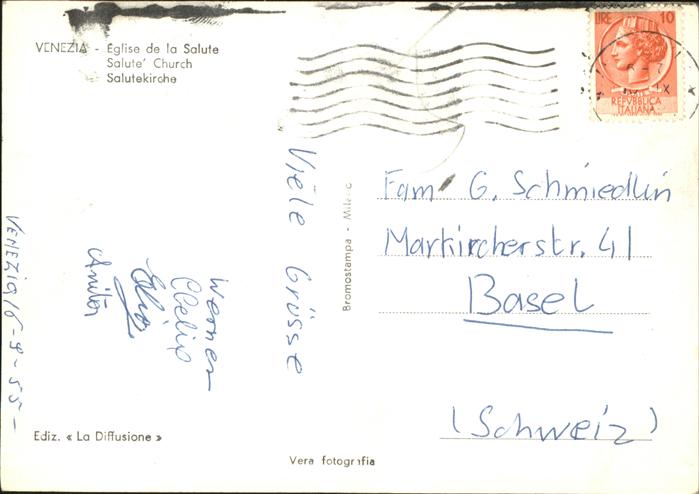 VENEZIA - Église de la Salute
Salute' Church
Salutekirche
LIRE 10
REPVBBLICA
ITALIANA
Viele Grüsse
Werner
Anita
VENEZIA / 6-9-55-
Bromostampa - Milano
Fam. G. Schmiedlin
Markircherstr. 41
Basel
(Schweiz)
Ediz. « La Diffusione »
Vera fotografia